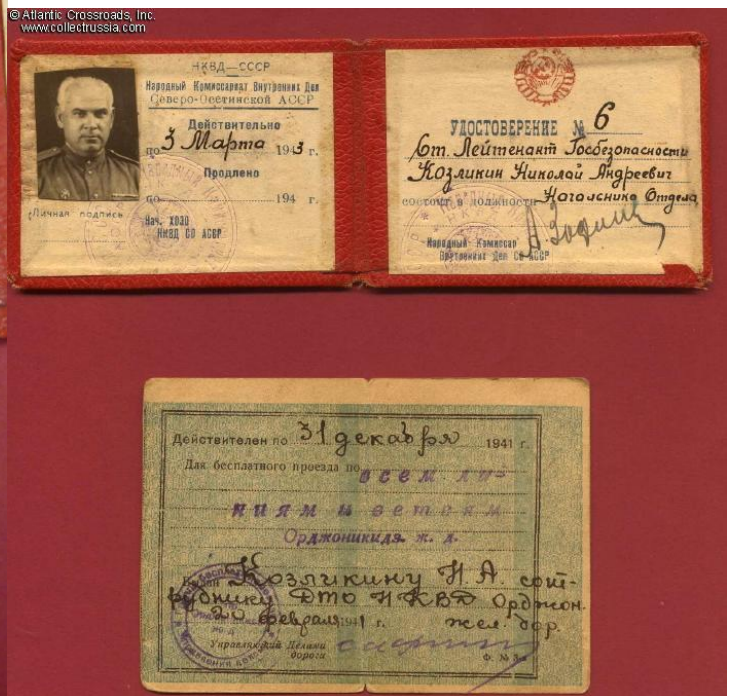 © Atlantic Crossroads, Inc.
www.collectrussia.com
НКВД—СССР
Народный Комиссариат Внутренних Дел
Северо-Осетинской АССР
Действительно
по 3 Марта 1943 г.
Продлено
по 194 г.
Личная подпись
Нач. ХОЗО
НКВД СО АССР
УДОСТОВЕРЕНИЕ № 6
Ст. Лейтенант Госбезопасности
Козликин Николай Андреевич
состоит в должности Начальника Отдела
Народный Комиссар
Внутренних Дел СО АССР
Действителен по 31 декабря 1941 г.
Для бесплатного проезда по всем ли-
ниям и ветвям
Орджоникидз. ж. д.
Козликину Н. А. сот-
руднику ДТО НКВД Орджон.
20 февраля 1941 г. жел. дор.
Управляющий Делами
дороги